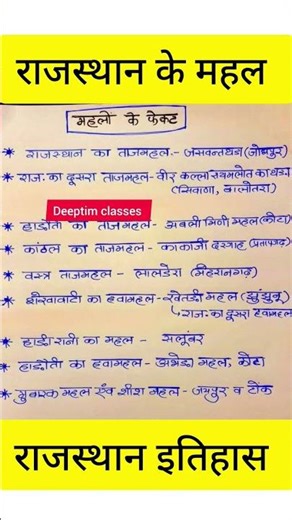 राजस्थान के महल
महलो के फेक्ट
* राजस्थान का ताजमहल - जसवन्तथडा (जोधपुर)
* राज. का दूसरा ताजमहल - वीर कल्ला रायमलोत का थडा
(सिवाणा, बालोतरा)
Deeptim classes
* हाडौती का ताजमहल - अबली मिणी महल (कोटा)
* कांठल का ताजमहल - काकाजी दरगाह (प्रतापगढ़)
* वस्त्र ताजमहल - लालडेरा (मेहरानगढ़)
* शेखावाटी का हवामहल - खेतडी महल (झुंझुनू)
राज. का दूसरा हवामहल
* हाडी रानी का महल - सलूंबर
* हाडौती का हवामहल - अभेडा महल, कोटा
* मुबारक महल एंव शीश महल - जयपुर व टोंक
राजस्थान इतिहास